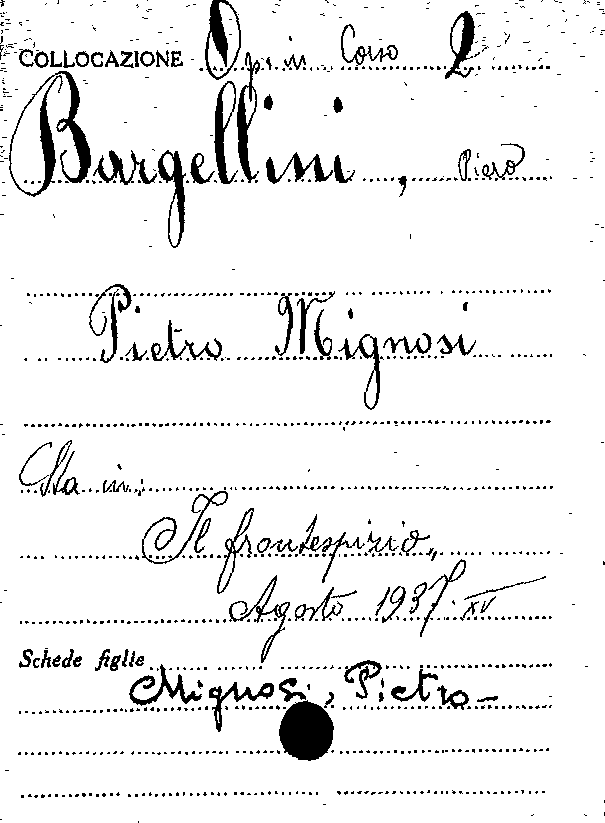 COLLOCAZIONE Op. in Corso 2
Bargellini, Piero
Pietro Mignosi
Sta in:
Il frontespizio,,
Agosto 1937. XV
Schede figlie
Mignosi, Pietro -